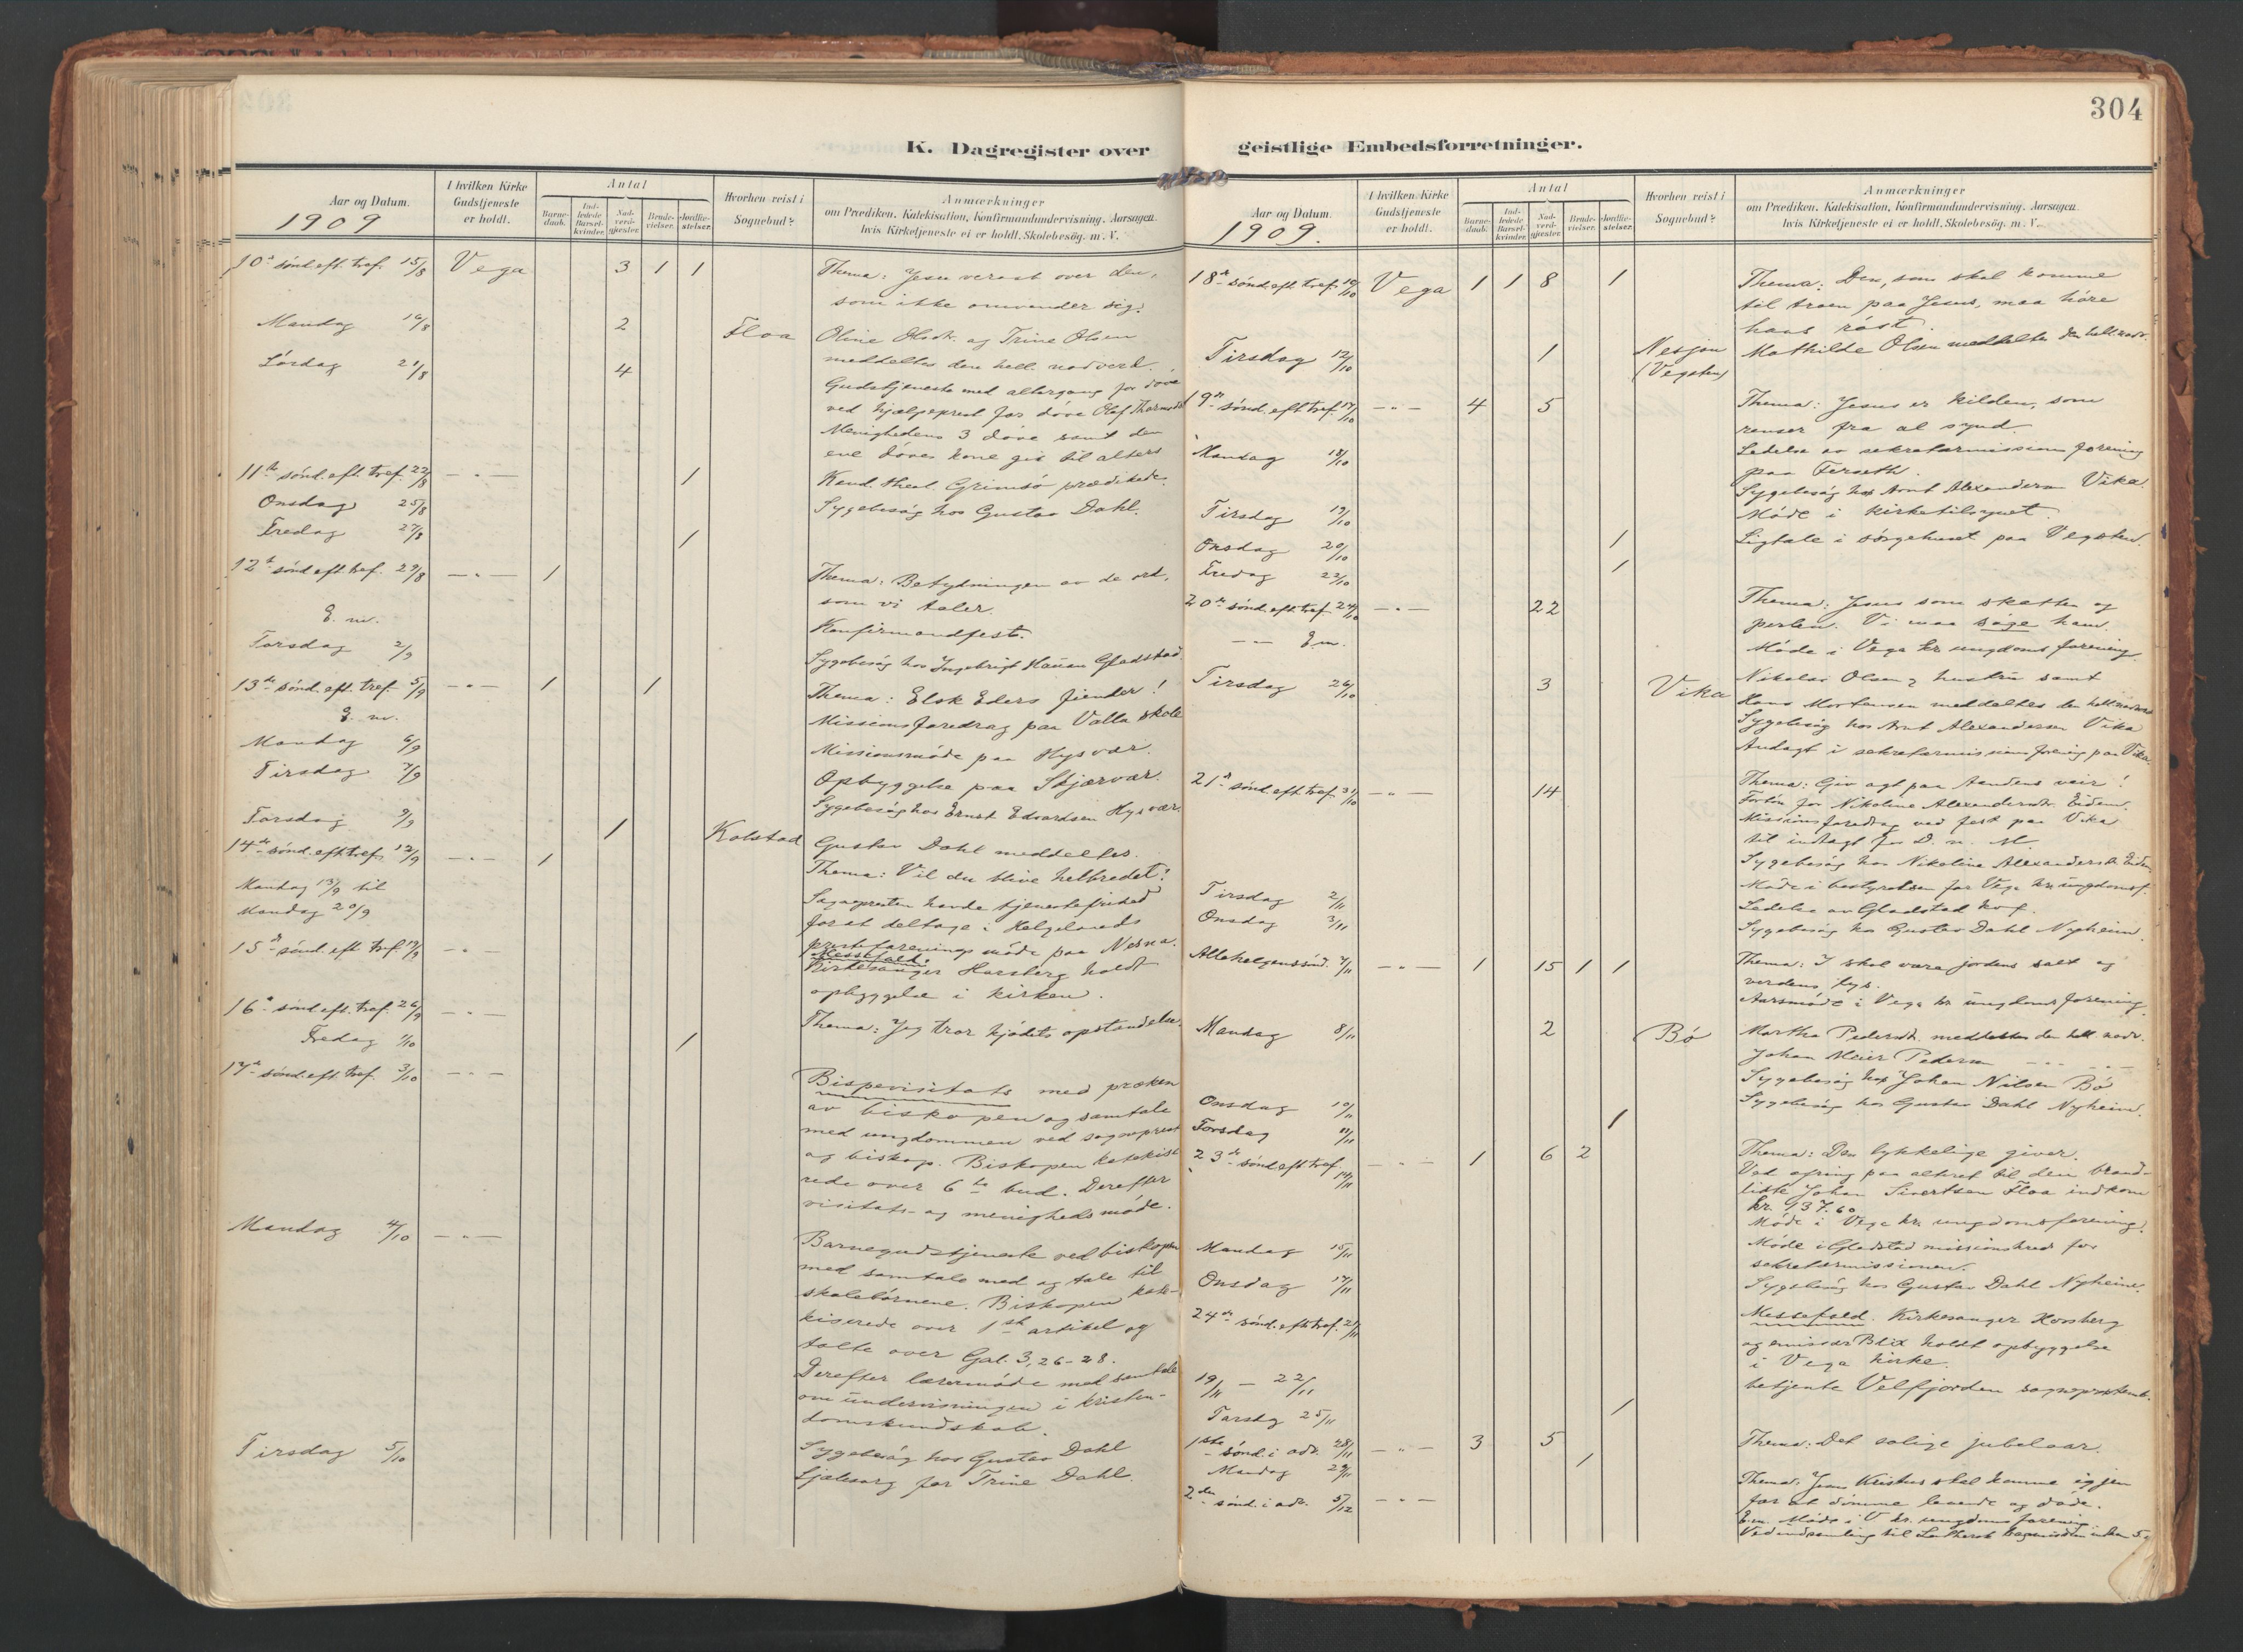 304
K. Dagregister over
Aar og Datum.
1909
I hvilken Kirke
Gudstjeneste
er holdt.
Antal
Barne-
daab.
Ind-
ledede
Barsel-
kvinder.
Nad-
verd-
gjester.
Brude-
vielser.
Jordfæ-
stelser.
Hvorhen reist i
Sognebud?
Anmærkninger
om Prædiken, Katekisation, Konfirmandundervisning. Aarsagen
hvis Kirketjeneste ei er holdt. Skolebesög. m. V.
10de sönd. eft. tref. 15/8 Vega 3 1 1 Thema: Jesu verasb over den,
som ikke omvender sig.
Mandag 16/8 2 Floa Oline Olsdtr. og Trine Olsen
meddeltes den hell. nadverd.
Lördag 21/8 4 Gudstjeneste med altergang for döve
ved hjælpeprest for döve Olaf
Menighedens 3 döve samt den
ene döves kone gik til alters
11te sönd. eft. tref. 22/8 — " — 1 Kand. theol. Grimsö prædikede.
Onsdag 25/8 Sygebesög hos Gustav Dahl.
Fredag 27/8 1
12te sönd. eft. tref. 29/8 — " — 1 Thema: Betydningen av de ord,
som vi taler.
E. m. Konfirmandfest.
Torsdag 2/9 Sygebesög hos Ingebrigt Hansen Gladstad.
13de sönd. eft. tref. 5/9 — " — 1 1 Thema: Elsk Eders fiender!
E. m. Missionsforedrag paa Valla skole
Mandag 6/9 Missionsmöde paa Hysvær.
Tirsdag 7/9 Opbyggelse paa Skjærvær.
Sygebesög hos Ernst Edvardsen Hysvær.
Torsdag 9/9 1 Kolstad Gustav Dahl meddeltes.
14de sönd. eft. tref. 12/9 — " — 1 Thema: Vil du blive helbredet?
Mandag 13/9 til
Mandag 20/9
Sognepresten havde tjenestefrihed
for at deltage i Helgelands
presteforenings möde paa Nesna.
15de sönd. eft. tref. 19/9 — " — Messefald.
Kirkesanger Horsberg holdt
opbyggelse i kirken.
16de sönd. eft. tref. 26/9 — " — Thema: Jeg tror kjödets opstandelse.
Fredag 1/10 1
17de sönd. eft. tref. 3/10 — " — Bispevisitats med præken
av biskopen og samtale
med ungdommen ved sogneprest
og biskop. Biskopen kateki-
rede over 6te bud. Derefter
visitats- og menighedsmöde.
Mandag 4/10 — " — Barnegudstjeneste ved biskopen
med samtale med og tale til
skolebörnene. Biskopen kate-
kiserede over 1ste artikel og
talte over Gal. 3, 26-28.
Derefter lærermöde med samtale
om undervisningen i kristen-
domskundskab.
Tirsdag 5/10 Sygebesög hos Gustav Dahl
Sjælesorg for Trine Dahl.
geistlige Embedsforretninger.
Aar og Datum.
1909.
I hvilken Kirke
Gudstjeneste
er holdt.
Antal
Barne-
daab.
Ind-
ledede
Barsel-
kvinder.
Nad-
verd-
gjester.
Brude-
vielser.
Jordfæ-
stelser.
Hvorhen reist i
Sognebud?
Anmærkninger
om Prædiken, Katekisation, Konfirmandundervisning. Aarsagen
hvis Kirketjeneste ei er holdt. Skolebesög. m. V.
18de sönd. eft. tref. 10/10 Vega 1 1 8 1 Thema: Den, som skal komme
til troen paa Jesus, maa höre
hans röst.
Tirsdag 12/10 1 Nesjøn
(Vegsten)
Mathilde Olsen meddeltes den hell. nadv.
19de sönd. eft. tref. 17/10 — " — 4 5 Thema: Jesus er kilden, som
renser fra al synd.
Mandag 18/10 Ledelse av sekretærmissions forening
paa Ferseth.
Sygebesög hos Arnt Alexandersen Vika.
Tirsdag 19/10 Möde i kirketilsynet.
Onsdag 20/10 1 Ligtale i sörgehuset paa Vegsten.
Fredag 22/10 1
20de sönd. eft. tref. 24/10 — " — 22 Thema: Jesus som skatten og
perlen. Vi maa søge ham.
— — Em. Möde i Vega kr. ungdomsforening.
Tirsdag 26/10 3 Vika Nikolai Olsen & hustru samt
Hans Mortensen meddeltes den hell. nadverd
Sygebesög hos Arnt Alexandersen Vika
Andagt i sekretærmissionsforening paa Vika.
21de sönd. eft. tref. 31/10 — " — 14 Thema: Giv agt paa Aandens veir!
Forbön for Nikoline Alexandersdtr. Eidem.
Missionsforedrag ved fest paa Vika
til indtægt for D. n. M.
Sygebesög hos Nikoline Alexandersdtr. Eidem
Tirsdag 2/11 Möde i bestyrelsen for Vega kr. ungdomsf.
Ledelse av Gladstad kvf.
Onsdag 3/11 Sygebesög hos Gustav Dahl Nyheim.
Allehelgenssönd. 7/11 — " — 1 15 1 1 Thema: I skal være jordens salt og
verdens lys.
Aarsmöde i Vega kr. ungdomsforening.
Mandag 8/11 2 Bö Martha Pedersdtr. meddeltes den hell. nadv.
Johan Meier Pedersen — " —
Sygebesög hos Johan Nilsen Bö
Onsdag 10/11 Sygebesög hos Gustav Dahl Nyheim.
Torsdag 11/11 1
23de sönd. eft. tref. 14/11 — " — 1 6 2 Thema: Den lykkelige giver.
Ved ofring paa altret til den brand-
lidte Johan Sivertsen Floa indkom
kr. 137.60
Möde i Vega kr. ungdomsforening.
Mandag 15/11 Möde i Gladstad missionskreds for
sekretærmissionen.
Onsdag 17/11 Sygebesög hos Gustav Dahl Nyheim.
24de sönd. eft. tref. 21/11 Messefald. Kirkesanger Horsberg
og emissær Blix holdt opbyggelse
i Vega kirke.
19/11 — 22/11 betjente Velfjorden sogneprestemb.
Torsdag 25/11 1
1ste sönd. i adv. 28/11 — " — 3 5 Thema: Det salige jubelaar.
Mandag 29/11 1
2den sönd. i adv. 5/12 — " — Thema: Jesus Kristus skal komme igjen
for at dömme levende og döde.
E.m. Möde i V. kr. ungdomsforening.